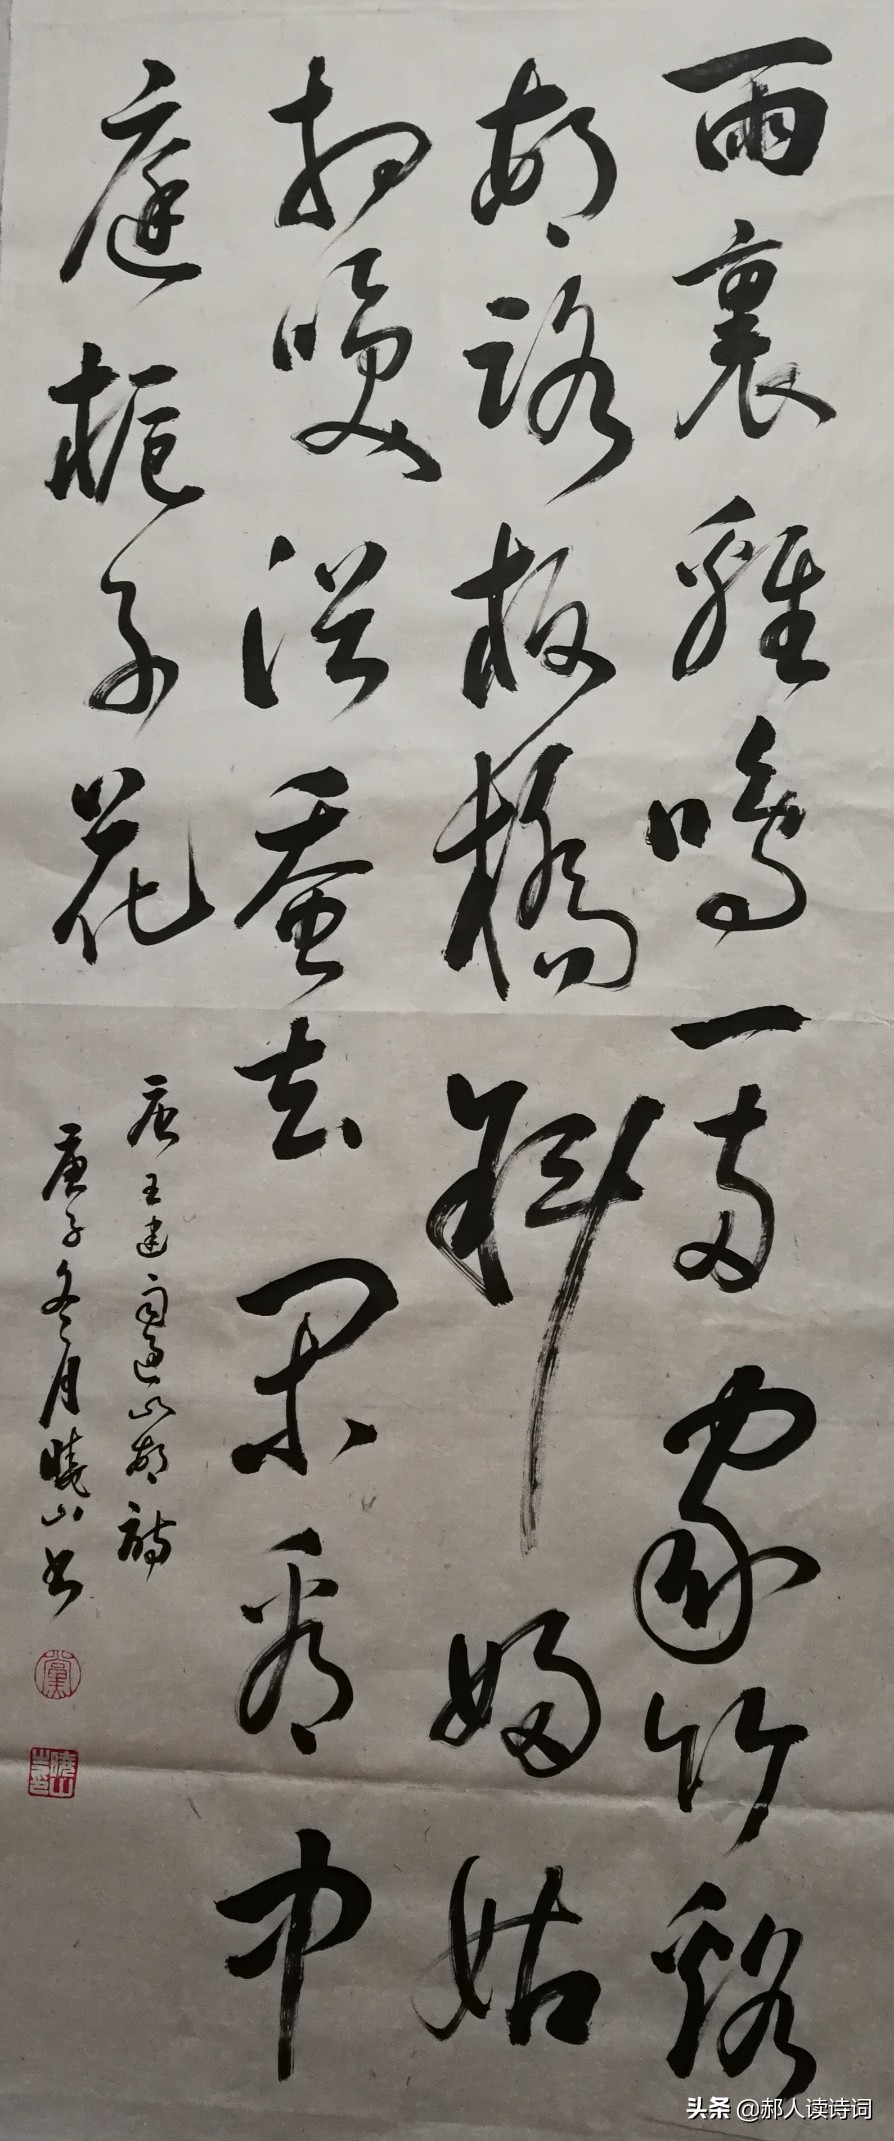 雨裏雞鳴一兩家竹谿
邨路板橋斜婦姑
相喚浴蚕去閑看中
庭梔子花
唐王建雨過山邨詩
庚子冬月曉山書
黨
头条 @郝人读诗词